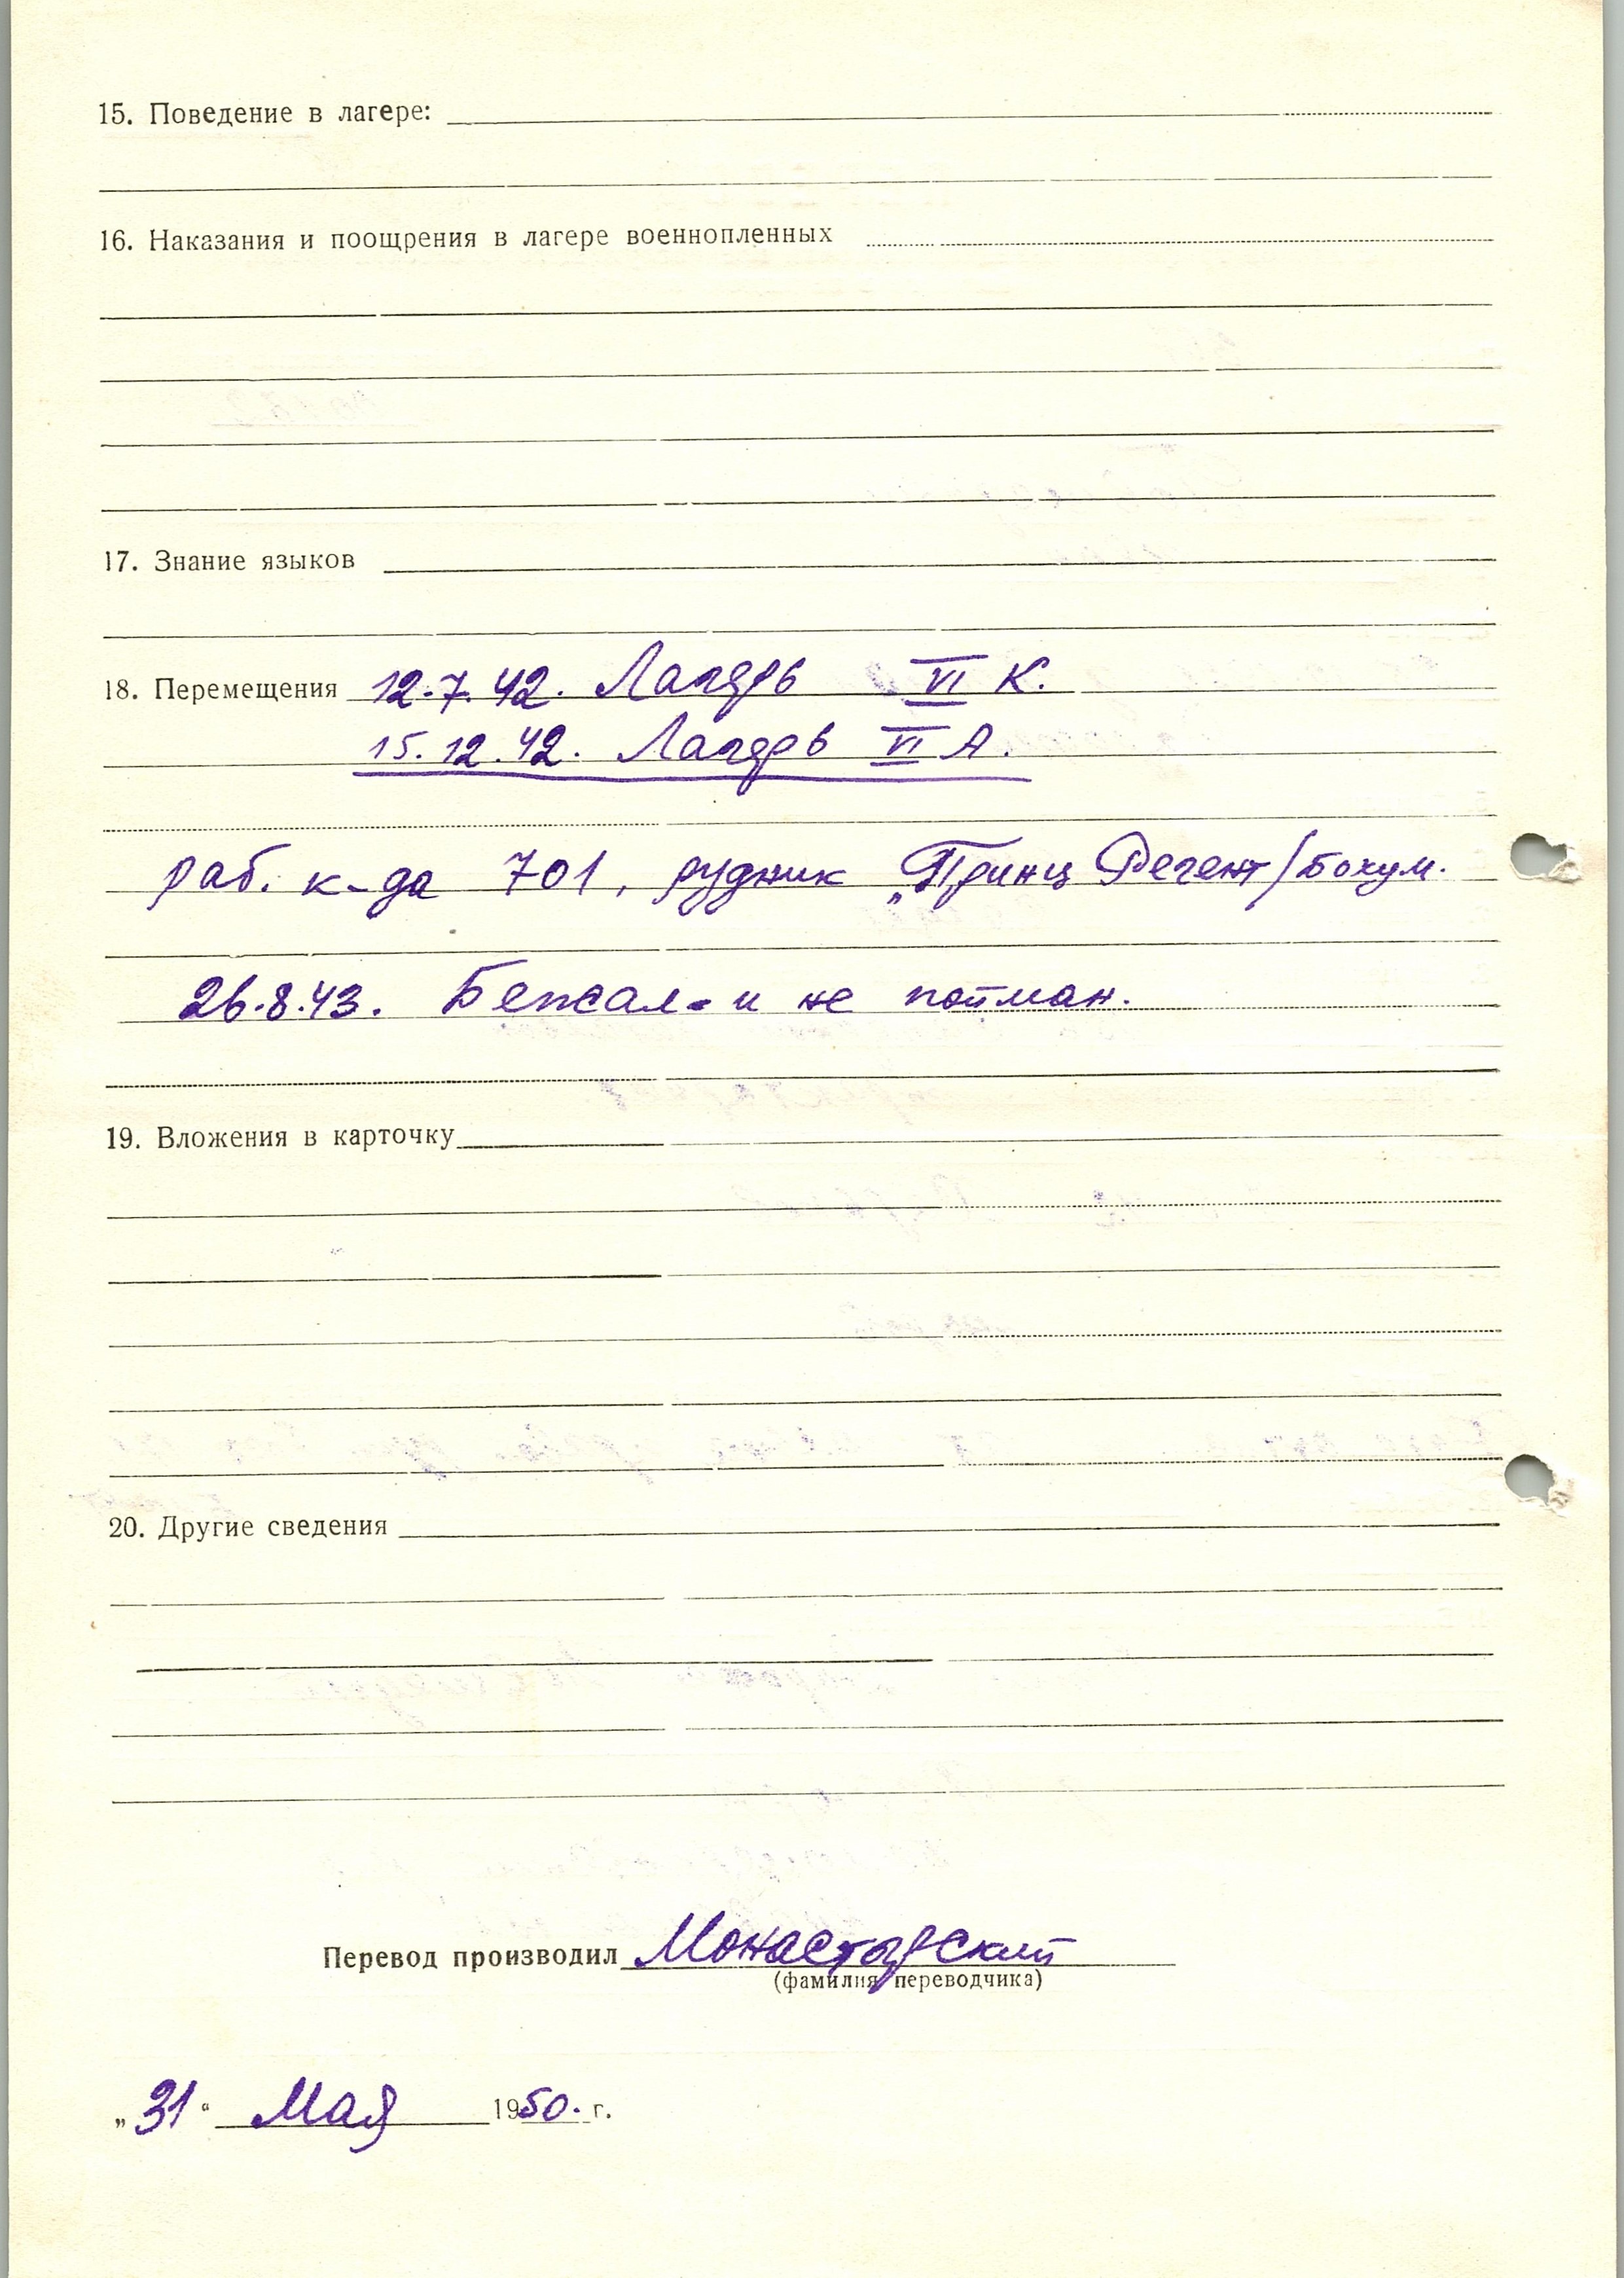 15. Поведение в лагере:
16. Наказания и поощрения в лагере военнопленных
17. Знание языков
18. Перемещения 12.7.42. Лагерь VI К.
15.12.42. Лагерь VI А.
раб. к-да 701, рудник „Принц Регент/Бохум.
26.8.43. Бежал и не пойман.
19. Вложения в карточку
20. Другие сведения
Перевод производил Монастырский
(фамилия переводчика)
„31“ Мая 1950. г.